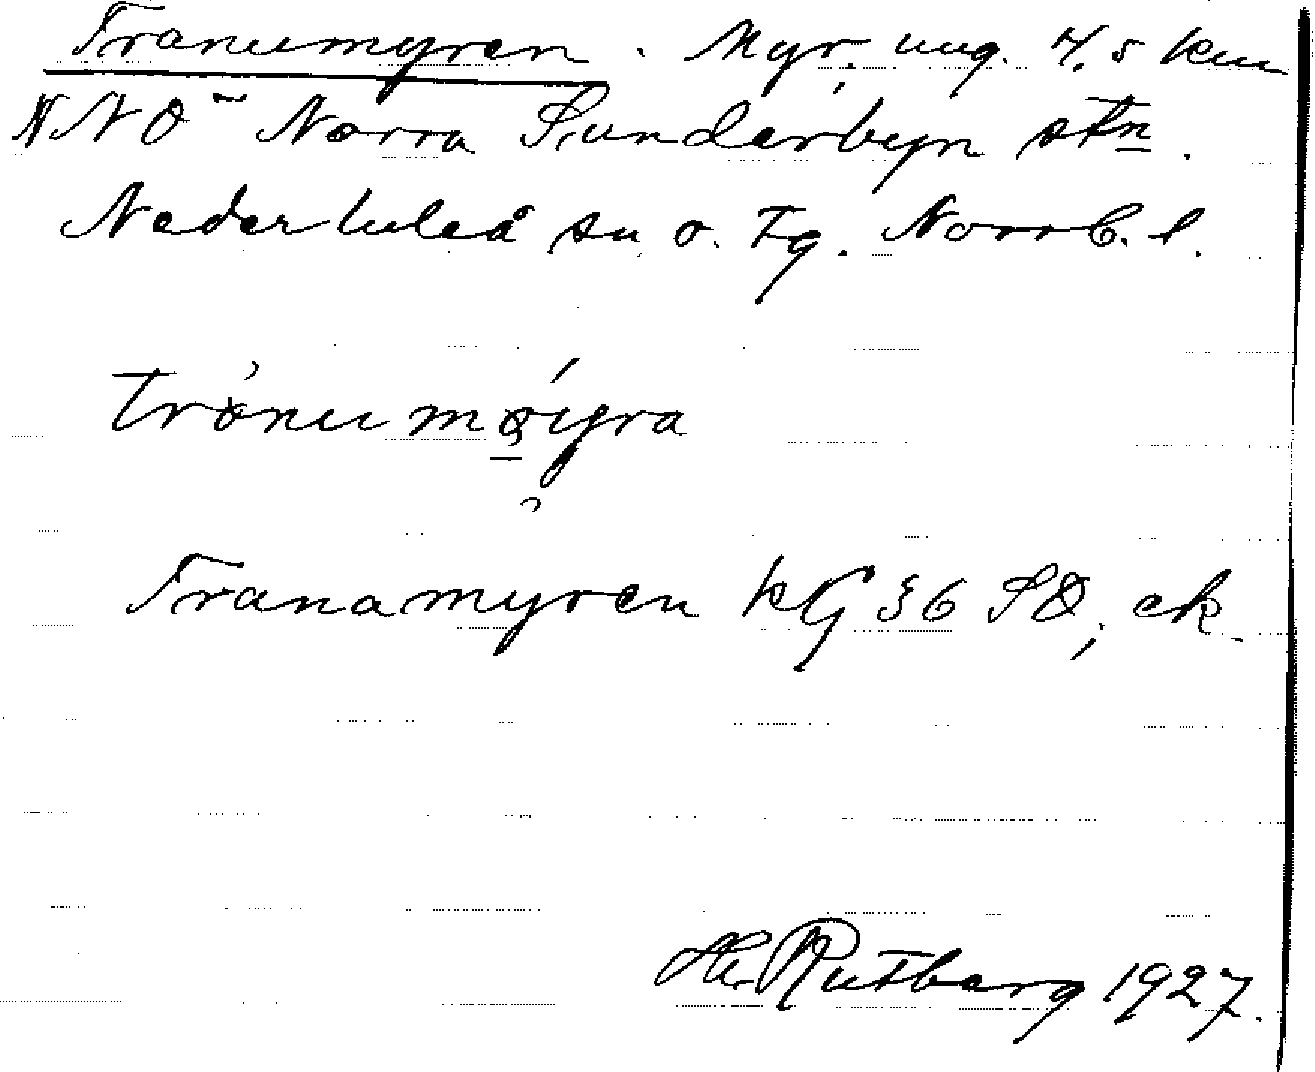 Tranumyren. Myr, ung. 7,5 km
NNO Norra Sunderbyn stn.
Nederluleå sn o. tg. Norrb. l.
Tranamyren kG 36 SO, ek.
Hr. Rutberg 1927.